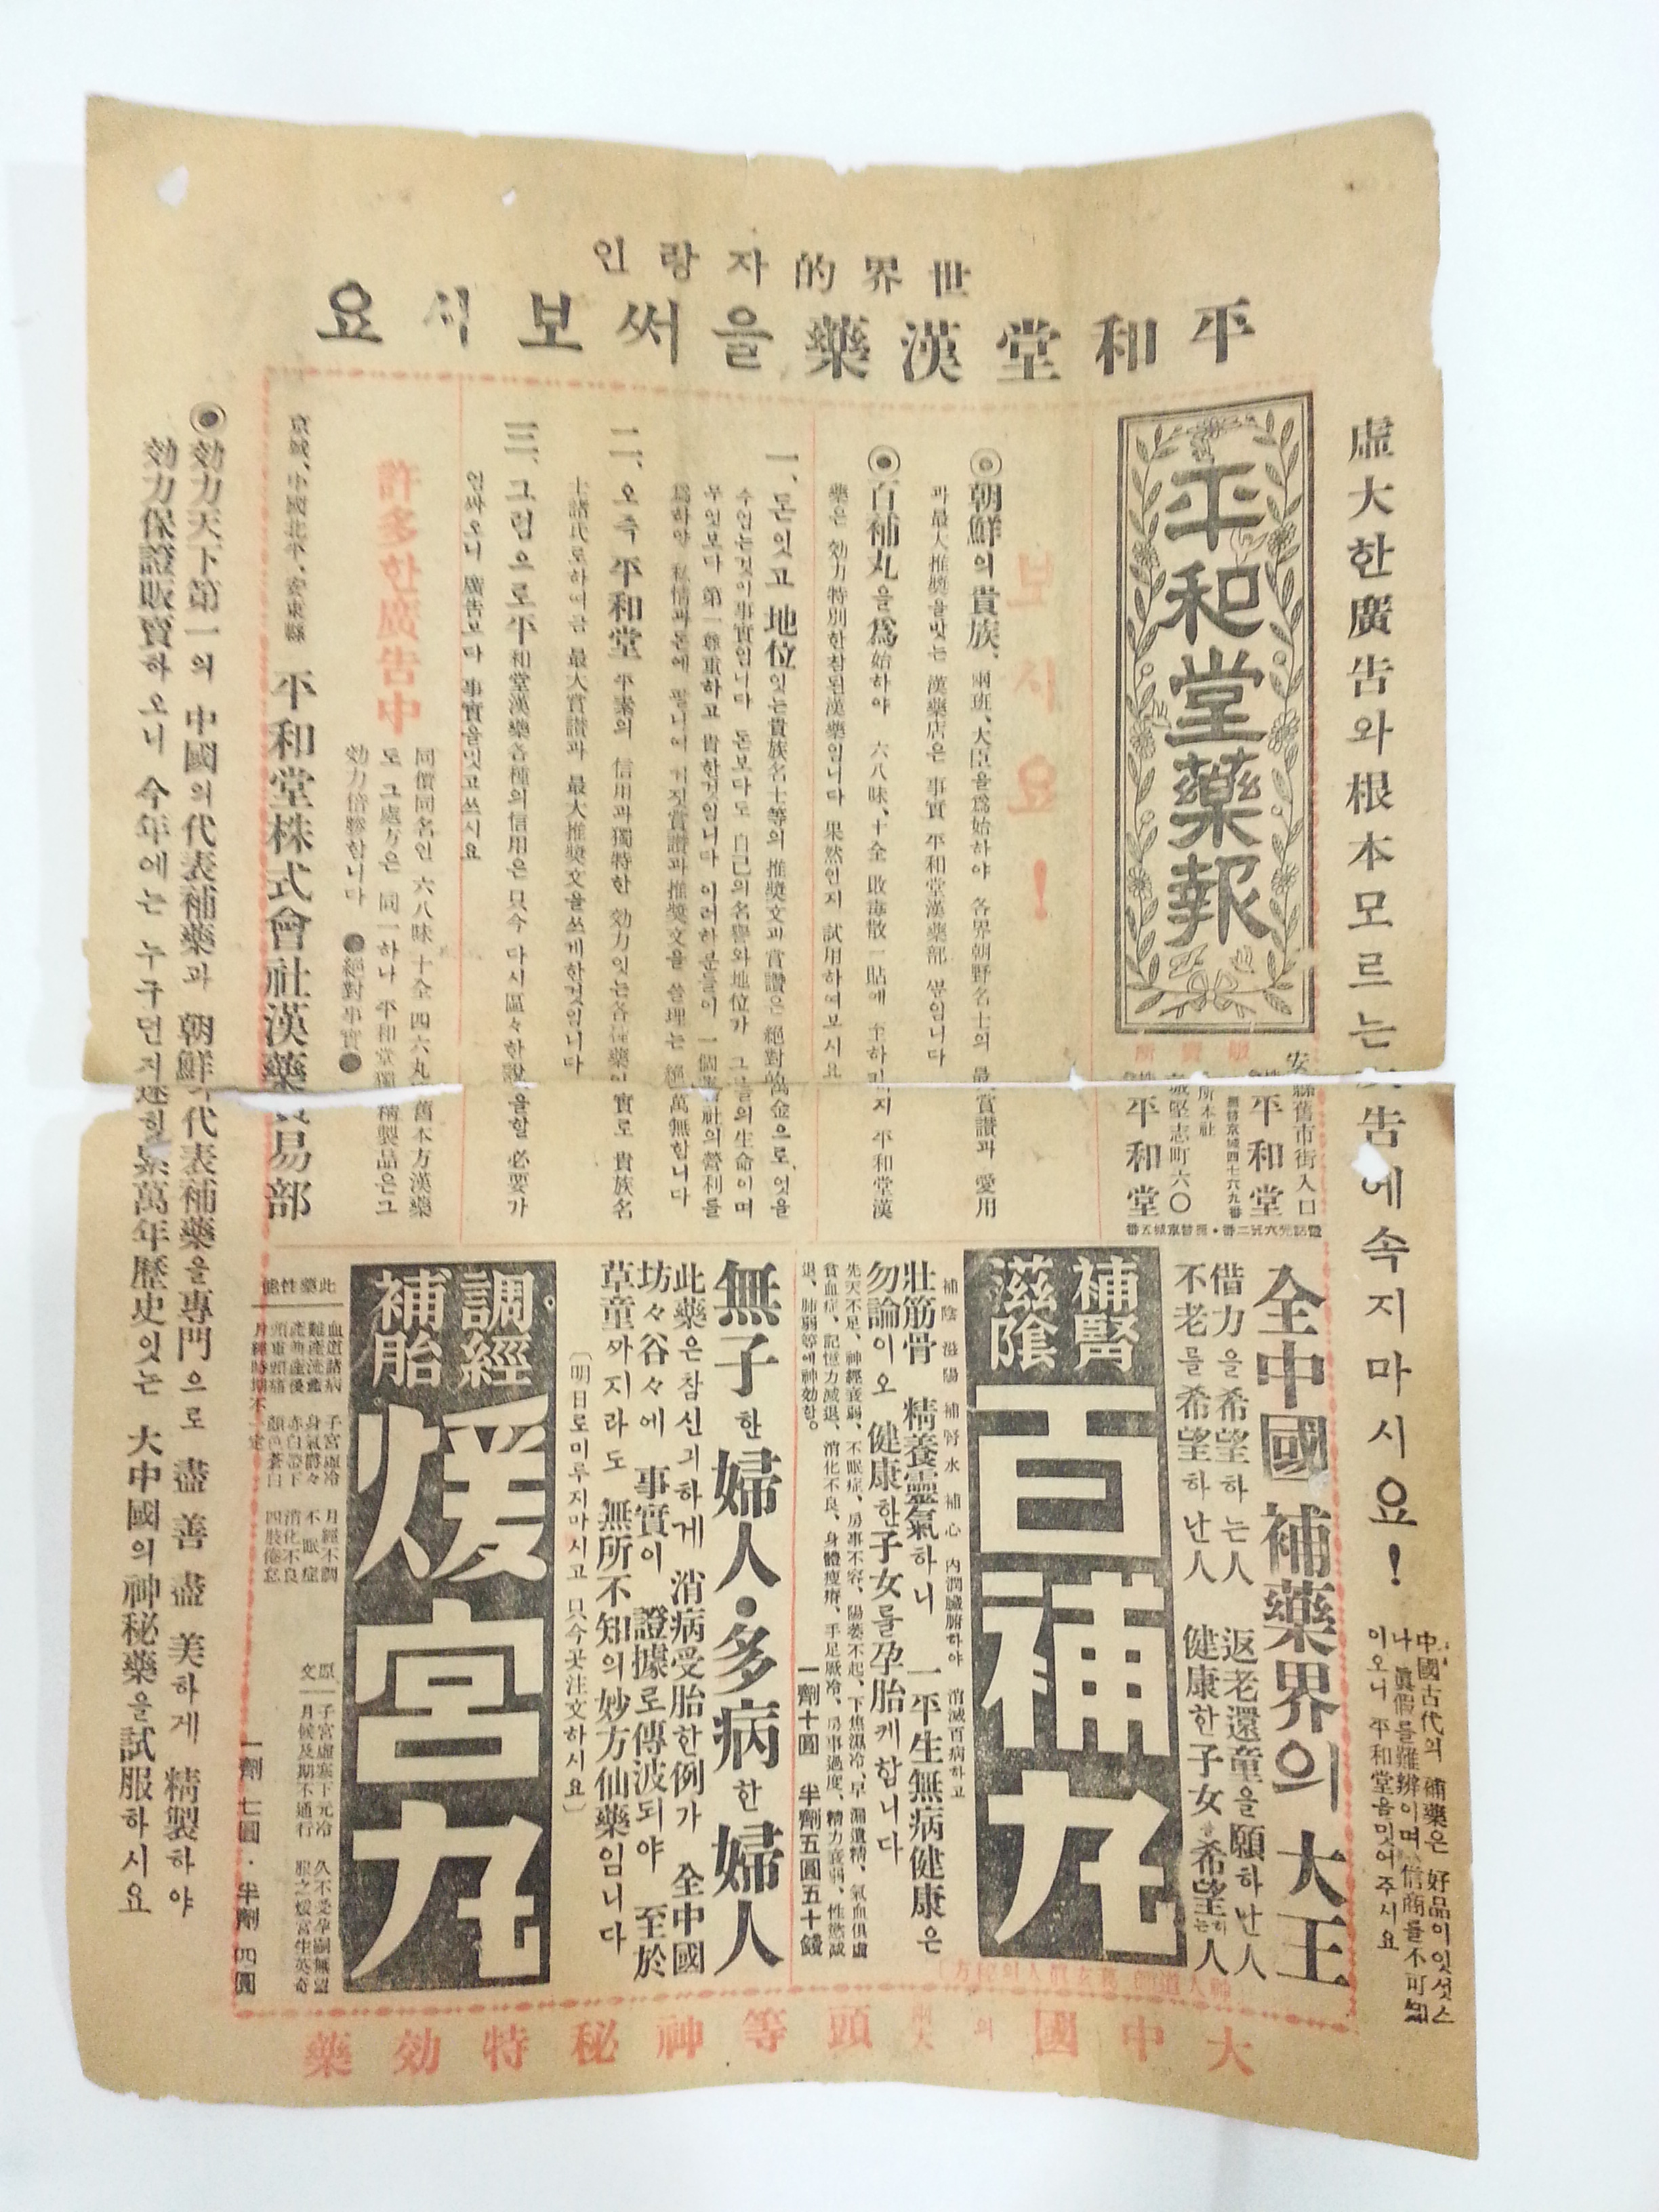 世界的자랑인
平和堂漢藥을써보시요
虛大한廣告와根本모르는 告에속지마시요!
中國古代의 補藥은 好品이잇섯스
나 眞假를難辨이며 信商을不可知
이오니 平和堂을밋어주시요
平和堂藥報
販賣所
安 縣舊市街入口
平和堂
振替京城四七六九番
本社
城堅志町六〇
平和堂
보시요!
◎朝鮮의貴族、兩班、大臣을爲始하야 各界朝野名士의 最 賞讃과 愛用
과最大推奬을밧는 漢藥店은 事實 平和堂漢藥部 뿐임니다
◉百補丸을爲始하야 六八味、十全 敗毒散一貼에 至하 지 平和堂漢
藥은 効力特別한참된漢藥임니다 果然인지 試用하여보시요
一、돈잇고 地位잇는貴族名士等의 推奬文과賞讃은 絕對的萬金으로、엇을
수업는것이事實임니다 돈보다도 自己의名譽와地位가 그들의生命이며
무엇보다 第一尊重하고 貴한것임니다 이러한분들이 一個 社의營利를
爲하야 私情과돈에 팔니여 거짓賞讃과推奬文을 쓸理는 萬無합니다
二、오즉 平和堂 平素의 信用과獨特한 効力잇는各種藥이 實로 貴族名
士諸氏로하여금 最大賞讃과 最大推奬文을쓰게한것임니다
三、그럼으로平和堂漢藥各種의信用은 只今 다시區々한說 을할 必要가
업싸오니 廣告보다 事實을밋고쓰시요
許多한廣告中
同價同名인 六八味 十全 四六丸 舊本方漢藥
도 그處方은 同一하나 平和堂獨 精製品은그
効力倍勝합니다 ●絕對事實●
京城、中國北平、安東縣 平和堂株式會社漢藥貿易部
全中國 補藥界의 大王
借力을希望하는人 返老還童을願하난人
不老를希望하난人 健康한子女를希望하는人
補腎
滋陰
百補丸
補陰 滋陽 補腎水 補心 內潤臟腑하야 消滅百病하고
壯筋骨 精養靈氣하니 一平生無病健康은
勿論이오 健康한子女를孕胎케합니다
先天不足、神經衰弱、不眠症、房事不容、陽萎不起、下焦濕冷、早漏遺精、氣血俱虛
貧血症、記憶力減退、消化不良、身體瘦瘠、手足厥冷、房事過度、精力衰弱、性慾減
退、肺弱等에神効함。
一劑十圓 半劑五圓五十錢
無子한婦人•多病한婦人
此藥은참신긔하게 消病受胎한例가 全中國
坊々谷々에 事實이 證據로傳波되야 至於
草童까지라도 無所不知의妙方仙藥임니다
(明日로미루지마시고 只今곳注文하시요)
調經
補胎
煖宮丸
此藥性能
血道諸病 子宮虛冷 月經不調
難產流產 身氣欝々 不眠症
產前產後 赤白證下 消化不良
頭重頭痛 顔色蒼白 四肢倦怠
月經時期不一定
原文
子宮虛寒下元冷 久不受孕嗣無望
月候及期不通行 服之煖宮生英奇
一劑七圓•半劑四圓
◉効力天下第一의 中國의代表補藥과 朝鮮의代表補藥을專門으로 盡善盡美하게 精製하야
効力保證販賣하오니 今年에는 누구던지 萬年歷史잇는 大中國의神秘藥을試服하시요
大中國의 頭等神秘特効藥